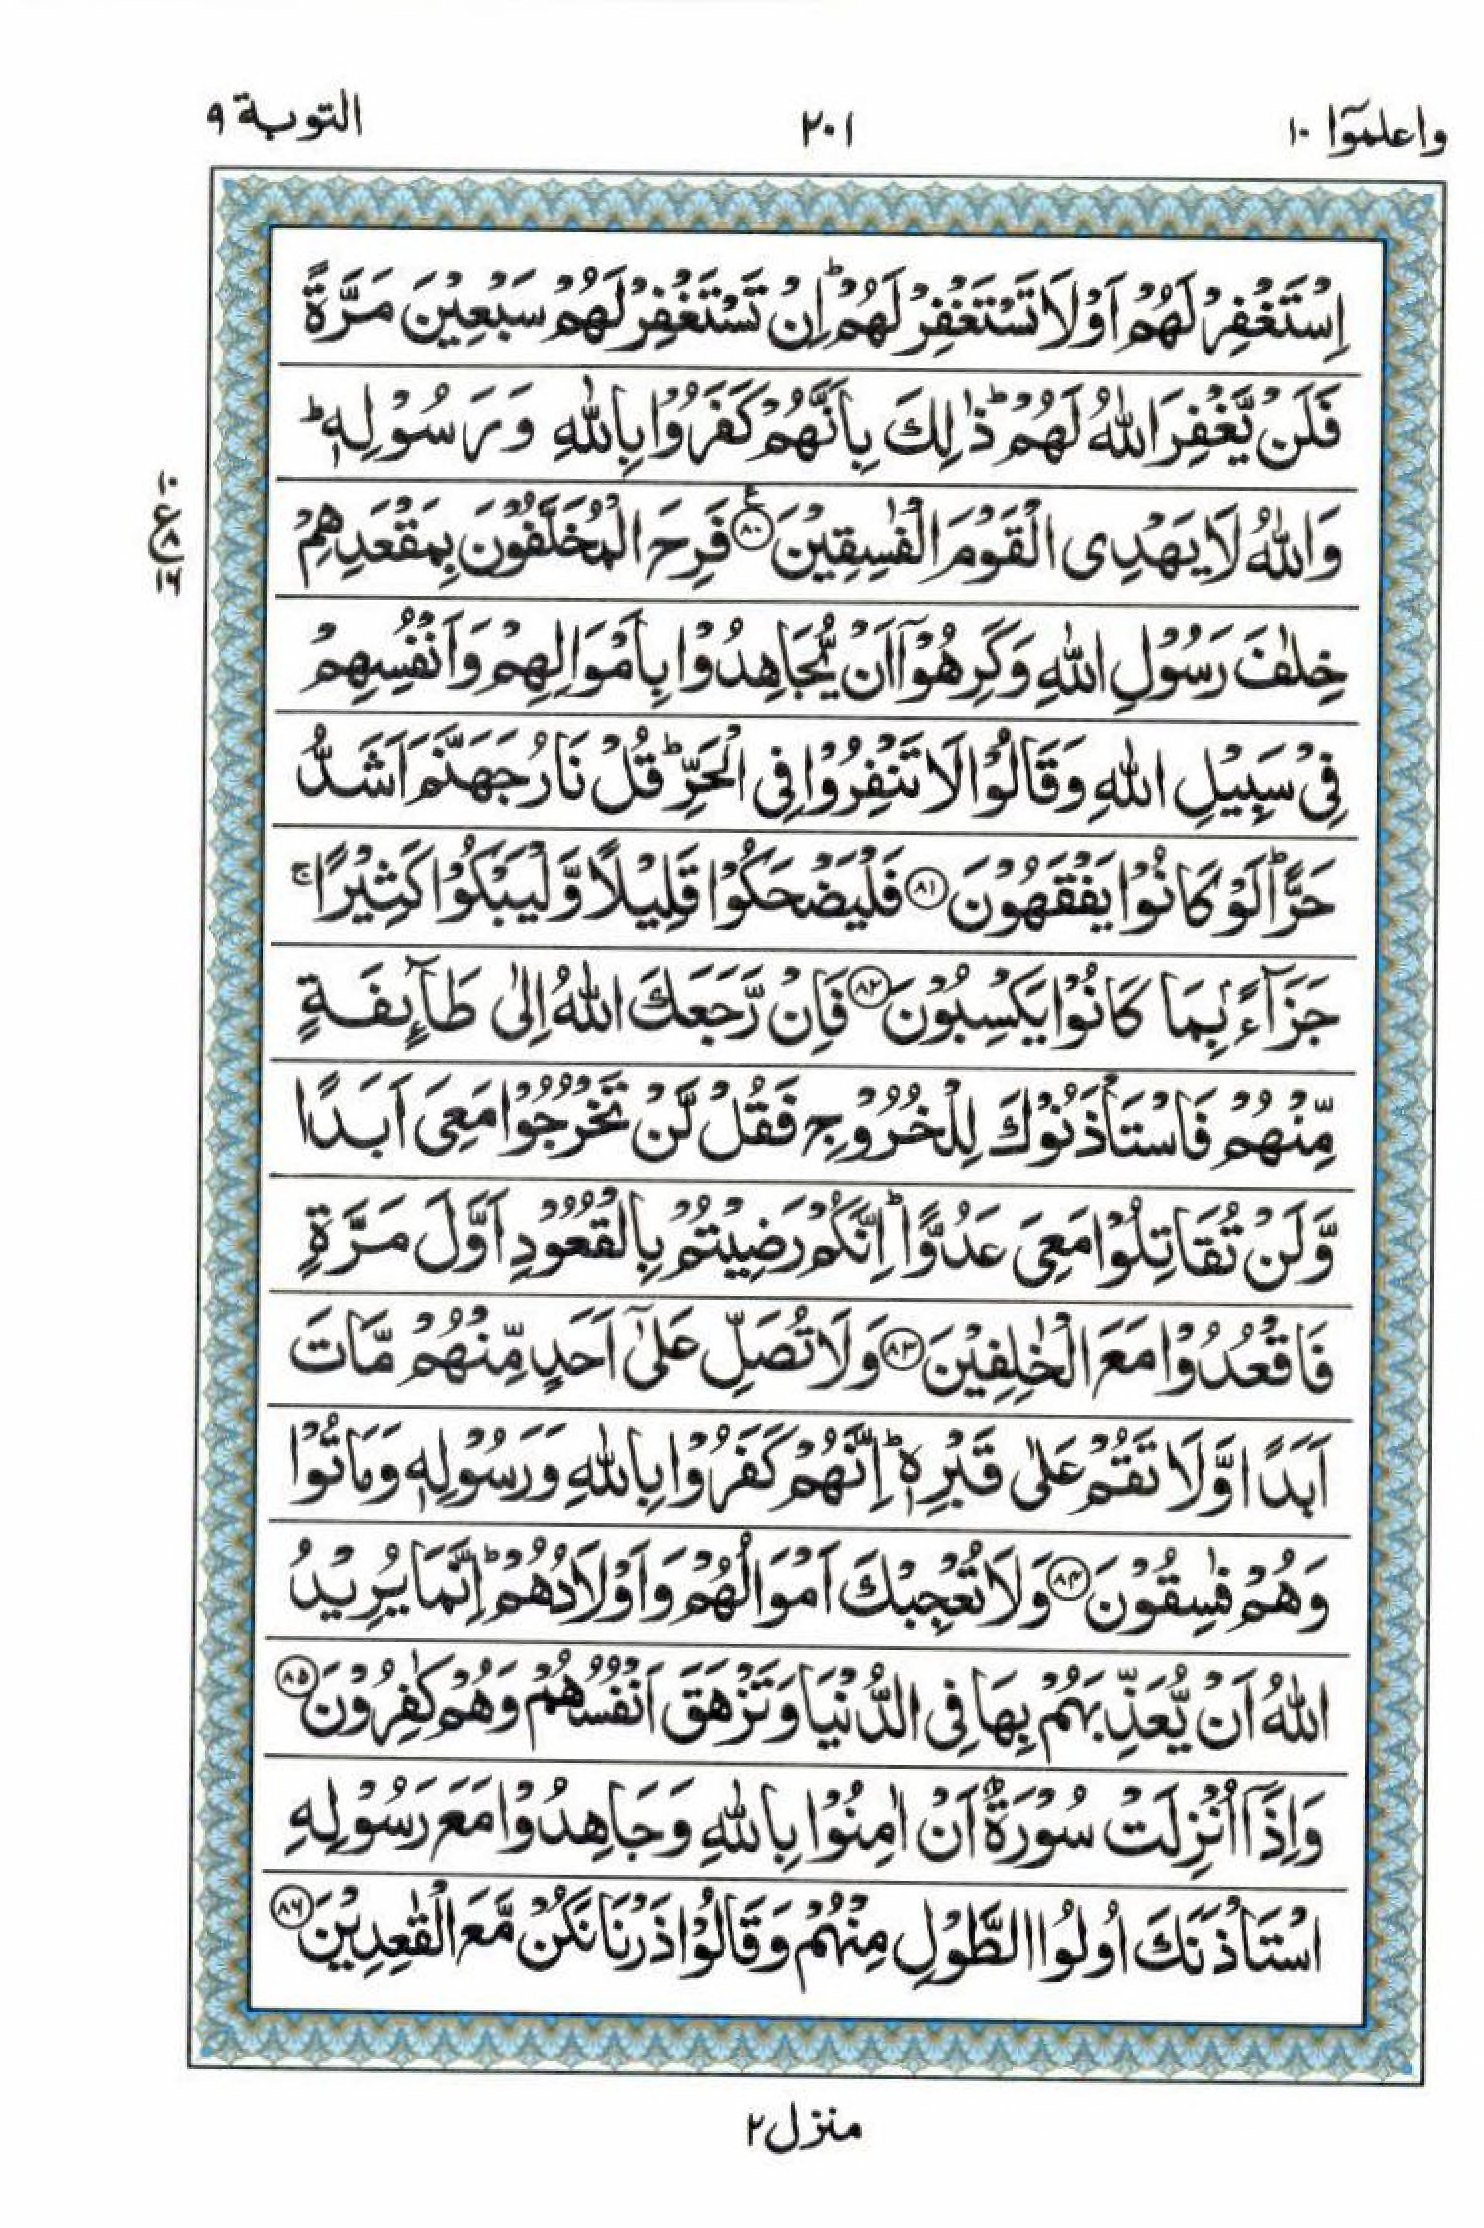 واعلموٓا ١٠
٢٠١
التوبة ٩
اِسْتَغْفِرْ لَهُمْ اَوْ لَا تَسْتَغْفِرْ لَهُمْ ؕ اِنْ تَسْتَغْفِرْ لَهُمْ سَبْعِيْنَ مَرَّةً
فَلَنْ يَّغْفِرَ اللّٰهُ لَهُمْ ؕ ذٰلِكَ بِاَنَّهُمْ كَفَرُوْا بِاللّٰهِ وَ رَسُوْلِهٖ ؕ
وَاللّٰهُ لَا يَهْدِى الْقَوْمَ الْفٰسِقِيْنَ ۧ ﴿٨٠﴾ فَرِحَ الْمُخَلَّفُوْنَ بِمَقْعَدِهِمْ
١٠
ع
٨
١٦
خِلٰفَ رَسُوْلِ اللّٰهِ وَكَرِهُوْٓا اَنْ يُّجَاهِدُوْا بِاَمْوَالِهِمْ وَاَنْفُسِهِمْ
فِىْ سَبِيْلِ اللّٰهِ وَقَالُوْا لَا تَنْفِرُوْا فِى الْحَرِّ ؕ قُلْ نَارُ جَهَنَّمَ اَشَدُّ
حَرًّا ؕ لَوْ كَانُوْا يَفْقَهُوْنَ ﴿٨١﴾ فَلْيَضْحَكُوْا قَلِيْلًا وَّلْيَبْكُوْا كَثِيْرًا ۚ
جَزَآءًۢ بِمَا كَانُوْا يَكْسِبُوْنَ ﴿٨٢﴾ فَاِنْ رَّجَعَكَ اللّٰهُ اِلٰى طَآئِفَةٍ
مِّنْهُمْ فَاسْتَاْذَنُوْكَ لِلْخُرُوْجِ فَقُلْ لَّنْ تَخْرُجُوْا مَعِىَ اَبَدًا
وَّلَنْ تُقَاتِلُوْا مَعِىَ عَدُوًّا ؕ اِنَّكُمْ رَضِيْتُمْ بِالْقُعُوْدِ اَوَّلَ مَرَّةٍ
فَاقْعُدُوْا مَعَ الْخٰلِفِيْنَ ﴿٨٣﴾ وَلَا تُصَلِّ عَلٰٓى اَحَدٍ مِّنْهُمْ مَّاتَ
اَبَدًا وَّلَا تَقُمْ عَلٰى قَبْرِهٖ ؕ اِنَّهُمْ كَفَرُوْا بِاللّٰهِ وَرَسُوْلِهٖ وَمَاتُوْا
وَهُمْ فٰسِقُوْنَ ﴿٨٤﴾ وَلَا تُعْجِبْكَ اَمْوَالُهُمْ وَاَوْلَادُهُمْ ؕ اِنَّمَا يُرِيْدُ
اللّٰهُ اَنْ يُّعَذِّبَهُمْ بِهَا فِى الدُّنْيَا وَتَزْهَقَ اَنْفُسُهُمْ وَهُمْ كٰفِرُوْنَ ﴿٨٥﴾
وَاِذَآ اُنْزِلَتْ سُوْرَةٌ اَنْ اٰمِنُوْا بِاللّٰهِ وَجَاهِدُوْا مَعَ رَسُوْلِهِ
اسْتَاْذَنَكَ اُولُوا الطَّوْلِ مِنْهُمْ وَقَالُوْا ذَرْنَا نَكُنْ مَّعَ الْقٰعِدِيْنَ ﴿٨٦﴾
منزل ٢